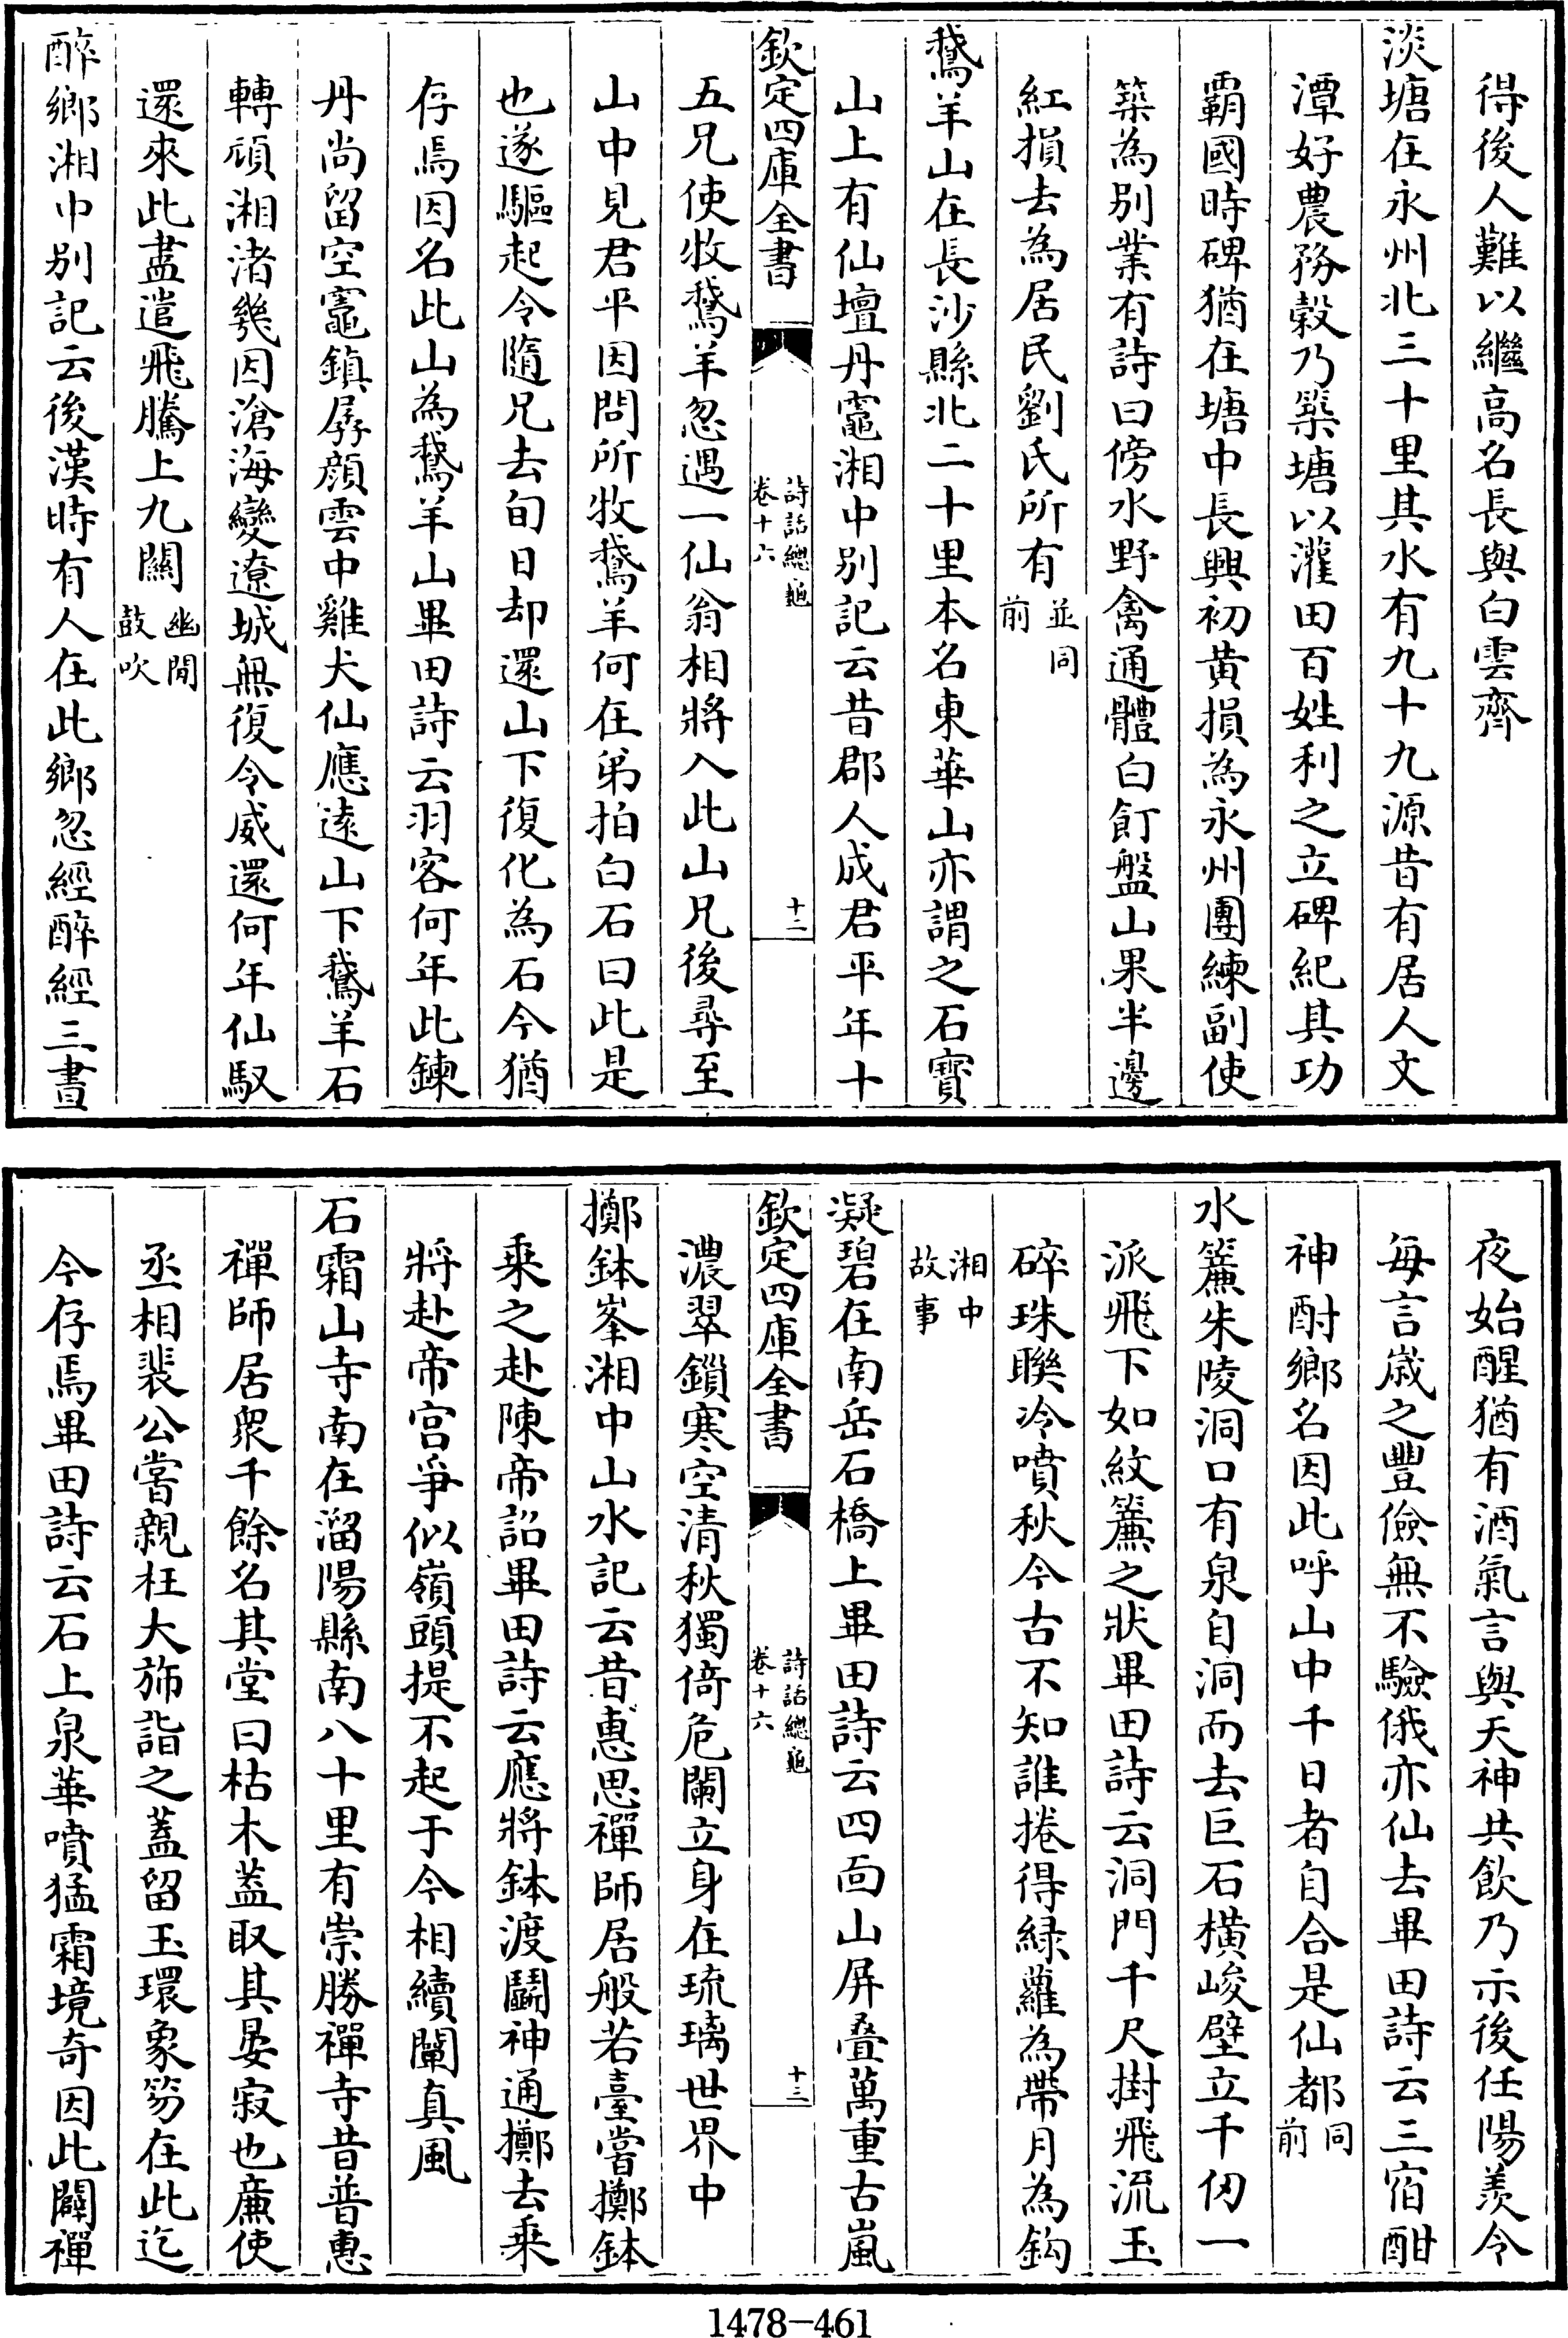 得後人難以繼高名長與白雲齊
淡塘在永州北三十里其水有九十九源昔有居人文
潭好農務穀乃築塘以灌田百姓利之立碑紀其功
霸國時碑猶在塘中長興初黄損為永州團練副使
築為别業有詩曰傍水野禽通體白飣盤山果半邊
紅損去為居民劉氏所有並同前
鵞羊山在長沙縣北二十里本名東華山亦謂之石寶
山上有仙壇丹竈湘中别記云昔郡人成君平年十
欽定四庫全書
詩話總龜
卷十六
十二
五兄使牧鵞羊忽遇一仙翁相將入此山兄後尋至
山中見君平因問所牧鵞羊何在弟拍白石曰此是
也遂驅起令隨兄去旬日却還山下復化為石今猶
存焉因名此山為鵞羊山畢田詩云羽客何年此鍊
丹尚留空竈鎮孱顔雲中雞犬仙應遠山下鵞羊石
轉頑湘渚幾因滄海變遼城無復令威還何年仙馭
還來此盡遣飛騰上九關幽閒鼓吹
醉鄉湘中别記云後漢時有人在此鄉忽經醉經三晝
夜始醒猶有酒氣言與天神共飲乃示後任陽羨令
每言歲之豐儉無不驗俄亦仙去畢田詩云三宿酣
神酎鄉名因此呼山中千日者自合是仙都同前
水簾朱陵洞口有泉自洞而去巨石橫峻壁立千仞一
派飛下如紋簾之狀畢田詩云洞門千尺掛飛流玉
碎珠聯冷噴秋今古不知誰捲得緑蘿為帶月為鈎
湘中故事
凝碧在南岳石橋上畢田詩云四面山屏叠萬重古嵐
欽定四庫全書
詩話總龜
卷十六
十三
濃翠鎖寒空清秋獨倚危闌立身在琉璃世界中
擲鉢峯湘中山水記云昔惠思禪師居般若臺嘗擲鉢
乘之赴陳帝詔畢田詩云應將鉢渡鬭神通擲去乘
將赴帝宫爭似嶺頭提不起于今相續闡真風
石霜山寺南在溜陽縣南八十里有崇勝禪寺昔普惠
禪師居衆千餘名其堂曰枯木盖取其晏寂也廉使
丞相裴公嘗親枉大斾詣之蓋留玉環象笏在此迄
今存焉畢田詩云石上泉華噴猛霜境奇因此闢禪
1478-461